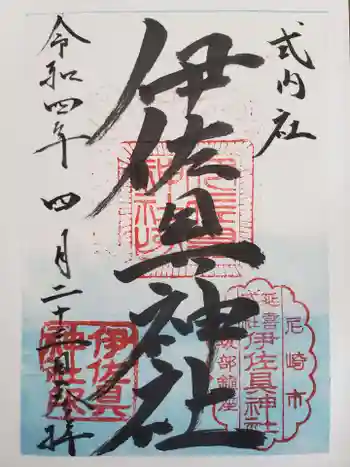 式内社
伊佐具神社
令和四年四月二十三日奉拝
尼崎市
延喜
式社
伊佐具神社
坂部鎮座
伊佐具
社社印